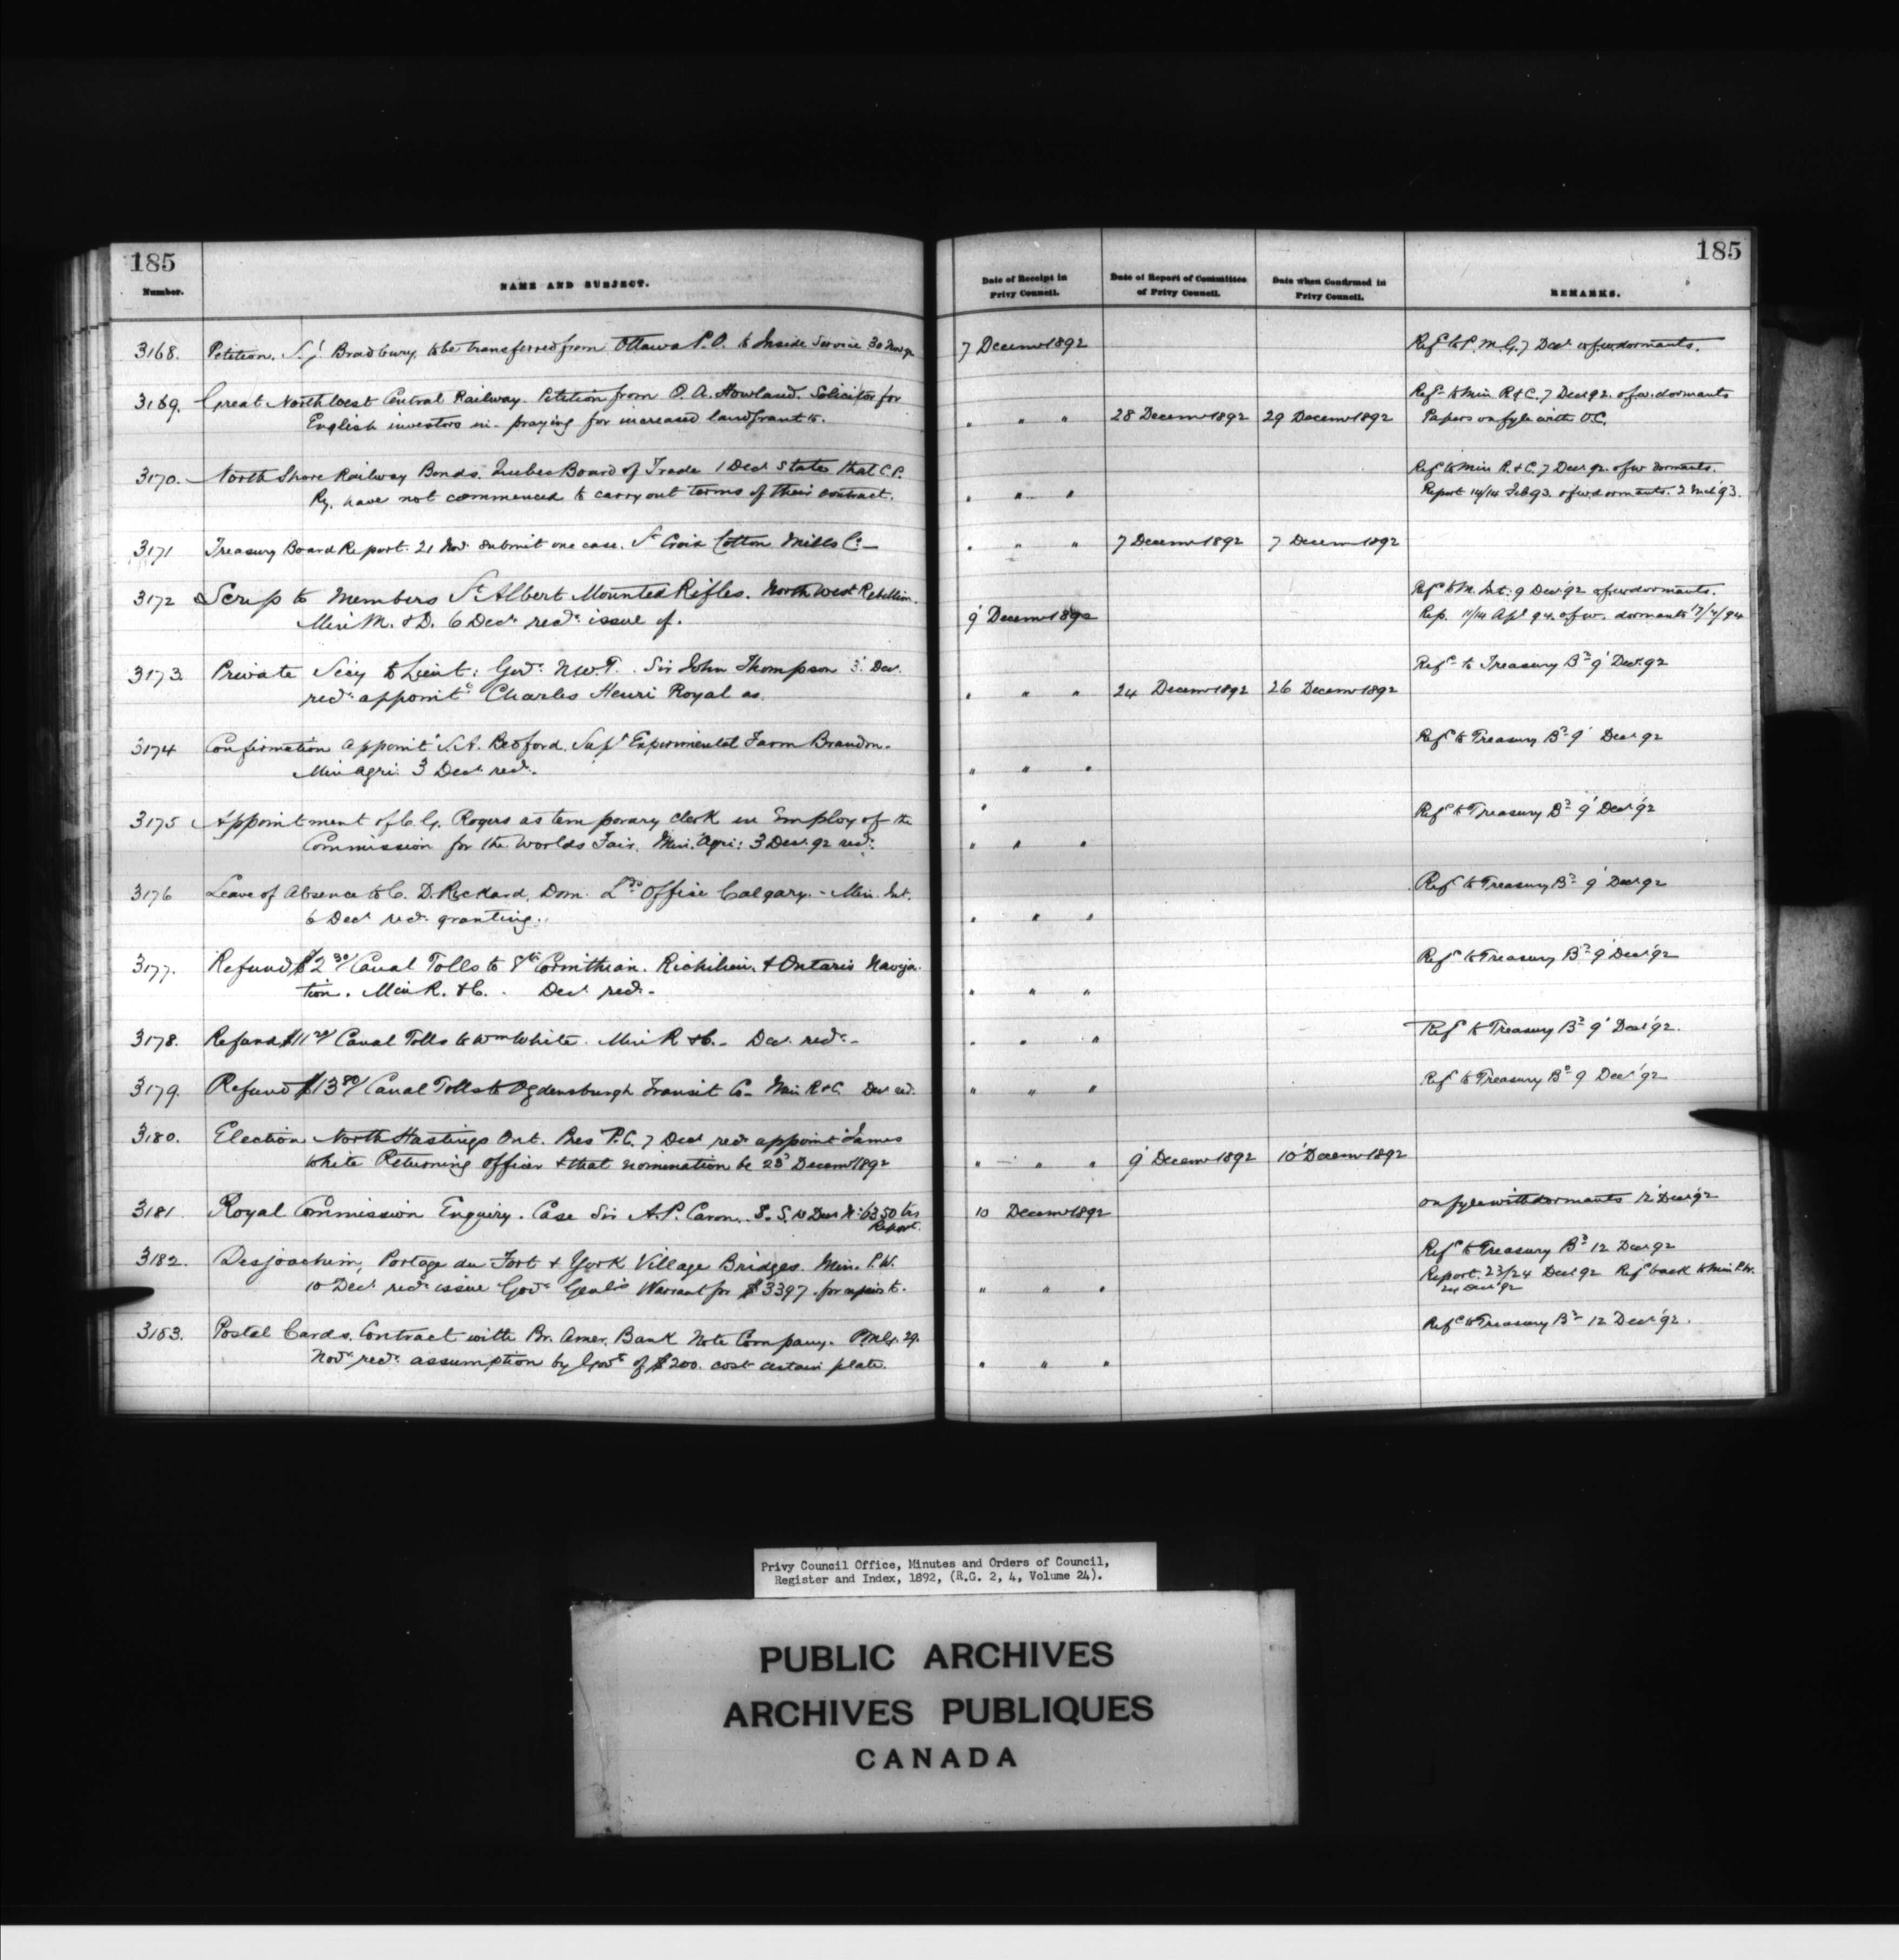 185
185
Number.
NAME AND SUBJECT.
Date of Receipt in Privy Council.
Date of Report of Committee of Privy Council.
Date when Confirmed in Privy Council.
REMARKS.
3168. Petition. S. J. Bradbury, to be transferred from Ottawa P.O. to Inside Service 30 Nov 92 7 Decemr 1892 Refd to P.M.G. 7 Decr of w. dormants.
3169. Great North West Central Railway. Petition from O. A. Howland. Solicitor for Refd to Min R & C. 7 Decr 92. of w. dormants
English investors in - praying for increased land grant to. " " " 28 Decemr 1892 29 Decemr 1892 Papers on fyle with O.C.
3170. North Shore Railway Bonds. Quebec Board of Trade 1 Decr states that C.P. Refd to Min R. & C. 7 Decr 92. of w dormants.
Ry. have not commenced to carry out terms of their contract. " " " Report 14/14 Feb 93. of w dormants. 2 Mch '93.
3171 Treasury Board Report. 21 Nov. submit one case. St Croix Cotton Mills Co. " " " 7 Decemr 1892 7 Decemr 1892
3172 Scrip to Members St Albert Mounted Rifles. North West Rebellion. Refd to M. Int: 9 Decr 92 of w dormants.
Min M. & D. 6 Decr recds issue of. 9 Decemr 1892 Rep. 11/14 Apl 94. of w. dormants 17/4/94
3173. Private Secy to Lieut: Govr N.W.T. Sir John Thompson 3 Decr. Refd to Treasury Bd 9 Decr 92
recds appointt Charles Henri Royal as. " " " 24 Decemr 1892 26 Decemr 1892
3174 Confirmation Appointt S. A. Bedford. Supt Experimental Farm Brandon. Refd to Treasury Bd 9 Decr 92
Min Agri: 3 Decr recds. " " "
3175 Appointment of C. G. Rogers as temporary clerk in Employ of the Refd to Treasury Bd 9 Decr '92
Commission for the Worlds Fair. Min. Agri: 3 Decr 92 recds. " " "
3176 Leave of Absence to C. D. Rickard, Dom. Lds Office Calgary. - Min. Int. Refd to Treasury Bd 9 Decr 92
6 Decr recds granting. " " "
3177. Refund $2.30/ Canal Tolls to Str Corinthian. Richilieu & Ontario Naviga- Refd to Treasury Bd 9 Decr '92
tion. Min R. & C. - Decr recds - " " "
3178. Refund $11.20/ Canal Tolls to Wm White. Min R & C. - Decr recds - " " " Refd to Treasury Bd 9 Decr '92.
3179. Refund $13.80/ Canal Tolls to Ogdensburgh Transit Co - Min R & C. Decr recds. " " " Refd to Treasury Bd 9 Decr '92
3180. Election North Hastings Ont. Pres P.C. 7 Decr recds appointt James
White Returning Officer & that nomination be 23d Decemr 1892 " " " 9 Decemr 1892 10 Decemr 1892
3181. Royal Commission Enquiry. Case Sir A. P. Caron. S. S. 10 Decr 10 Decemr 1892 on fyle with dormants 12 Decr '92
Report.
3182. Desjoachim, Portage du Fort & York Village Bridges. Min. P.W. Refd to Treasury Bd 12 Decr 92
10 Decr recds issue Govr Genl's Warrant for $3397. for repairs to. " " " Report. 23/24 Decr 92 Refd back to Min P.W.
24 Decr 92
3183. Postal Cards. Contract with Br. Amer. Bank Note Company. P.M.G. 29. Refd to Treasury Bd 12 Decr '92.
Novr recds assumption by Govt of $200. cost certain plate. " " "
Privy Council Office, Minutes and Orders of Council,
Register and Index, 1892, (R.G. 2, 4, Volume 24).
PUBLIC ARCHIVES
ARCHIVES PUBLIQUES
CANADA